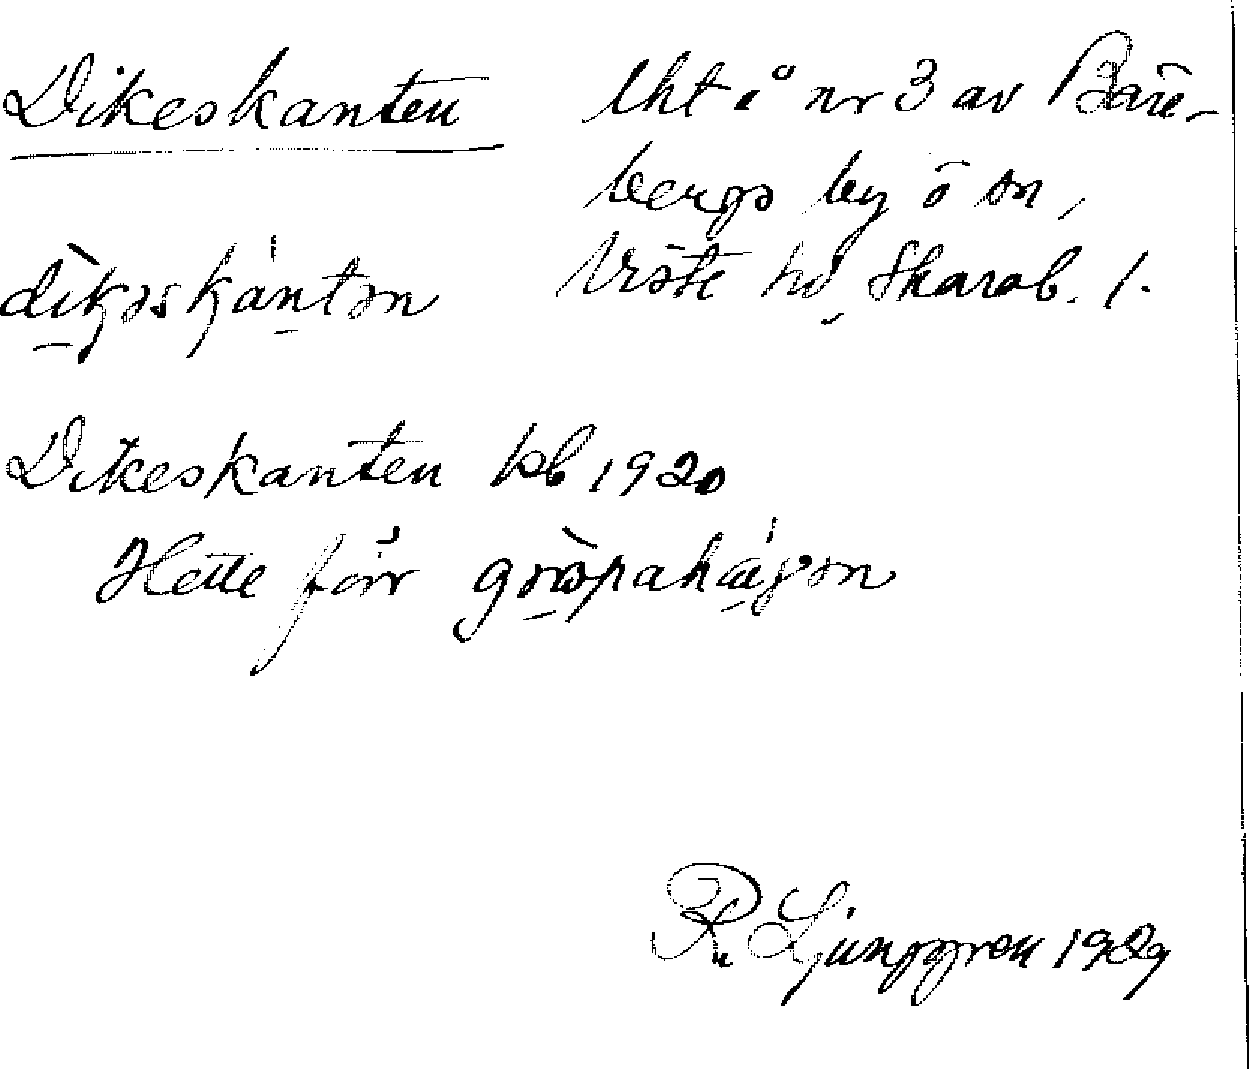 Dikeskanten
dìkəskántən
lht å nr 3 av Bäre-
bergs by o sn,
Viste hd Skarab. l.
Dikeskanten kb 1920
Hette förr
R Ljunggren 1929